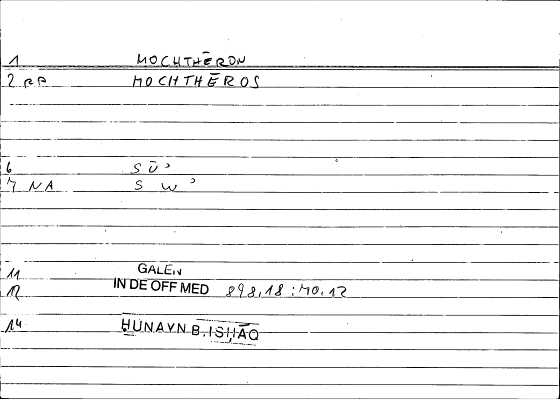 1 MOCHTHĒRON
2 AA MOCHTHĒROS
6 SŪʾ
7 NA SWʾ
11 GALEN
12 IN DE OFF MED 898,18 : 70,12
14 ḤUNAYN B. ISḤĀQ